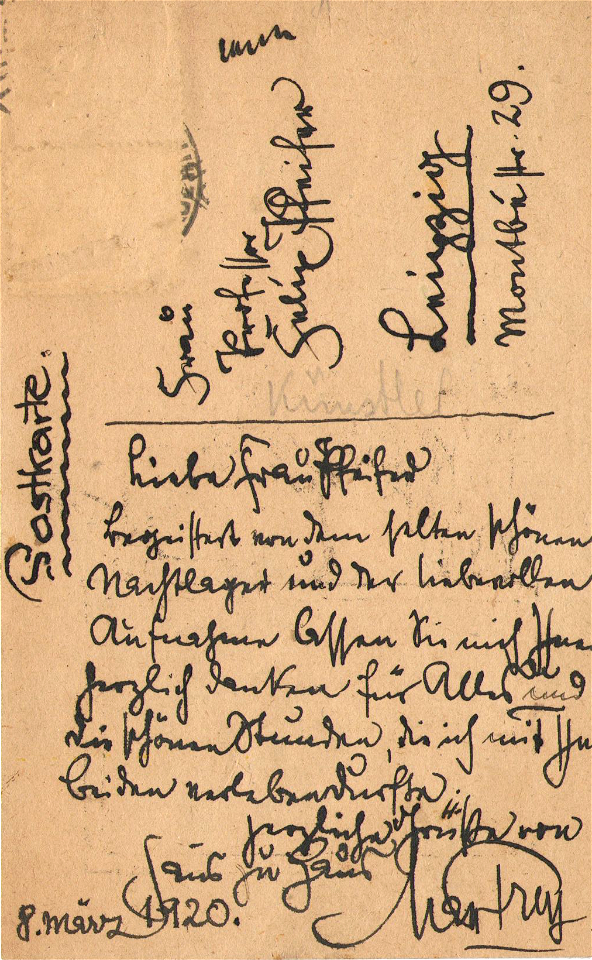 Postkarte.
Frau
Professor
Felix Pfeifer
Leipzig
Montbéstr. 29.
Künstler
Liebe Frau Pfeifer
begeistert von dem selten schönen
Nachtlager und der liebevollen
Aufnahme lassen Sie mich Ihnen
herzlich danken für Alles und
die schönen Stunden, die ich mit Ihn
beiden verleben durfte.
herzliche Grüße von
Haus zu Haus
Max Frey
8. März 1920.